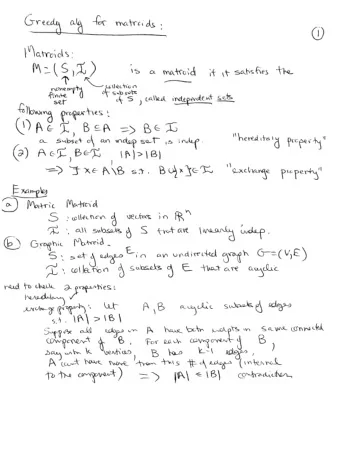 Greedy alg for matroids:
①
Matroids:
M = (S, I) is a matroid if it satisfies the
nonempty finite set
collection of subsets of S, called independent sets
following properties:
(1) A ∈ I, B ⊆ A => B ∈ I
a subset of an indep set is indep. "hereditary property"
(2) A ∈ I, B ∈ I, |A| > |B|
=> ∃ x ∈ A\B s.t. B ∪ {x} ∈ I "exchange property"
Examples
ⓐ Matric Matroid
S: collection of vectors in ℝⁿ
I: all subsets of S that are linearly indep.
ⓑ Graphic Matroid -
S: set of edges E in an undirected graph G=(V,E)
I: collection of subsets of E that are acyclic
need to check 2 properties:
hereditary ✓
exchange property: Let A, B acyclic subsets of edges
s.t. |A| > |B|
Suppose all edges in A have both endpts in same connected
component of B. For each component of B,
say with k vertices, B has k-1 edges,
A can't have more than this # of edges (internal
to the component) => |A| ≤ |B| contradiction